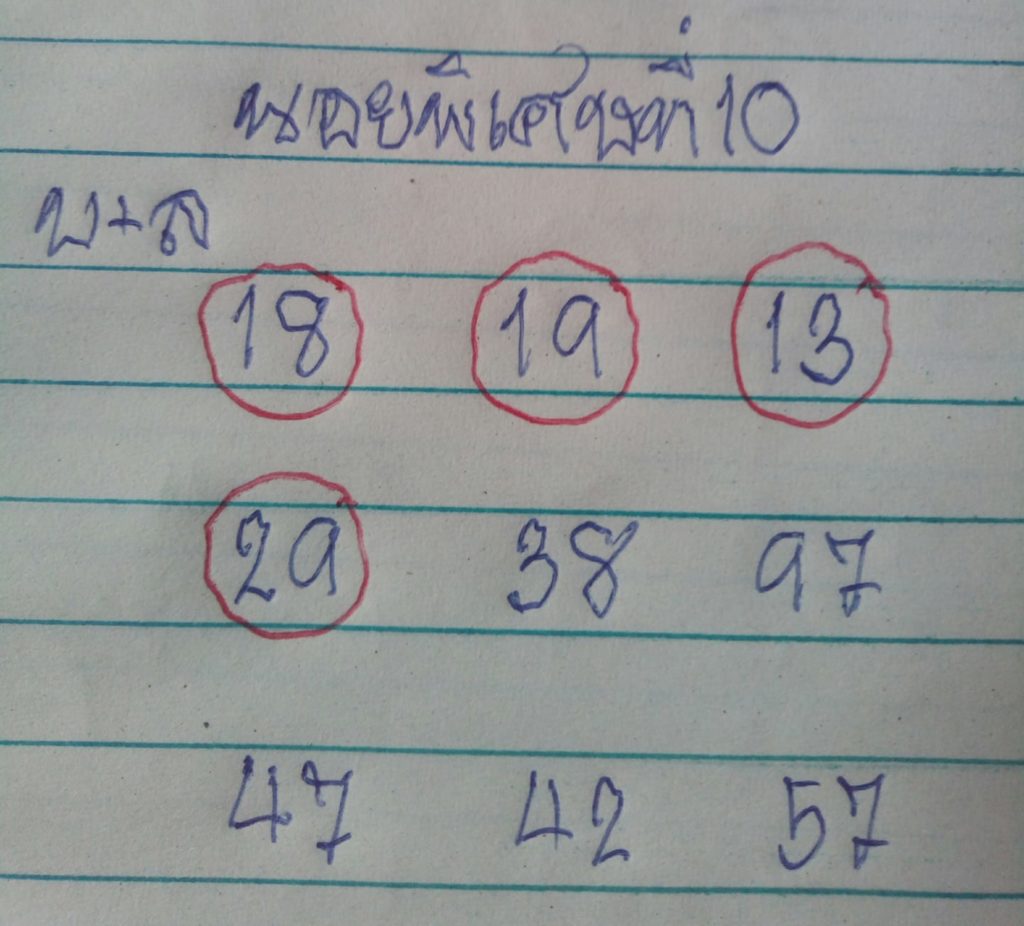 หฮอยพิเศษที่ 10
บ+ล
18 19 13
29 38 97
47 42 57